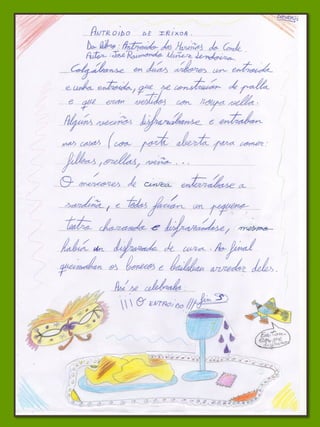 ANTROIDO DE IRIXOA.
Do libro: Antroido dos Muiños do Conde
Autor: José Raimundo Núñez Lendoiro
Colgábanse en dúas árbores un entroido
e unha entroida, que se construían de palla
e que eran vestidos con roupa vella.
Algúns veciños disfrazábanse e entraban
nas casas (coa porta aberta para comer:
filloas, orellas, viño...
O mércores de cinza enterrábase a
sardiña, e todos facían un pequeno
teatro chorando e disfrazándose, mesmo
había un disfrazado de cura. Ao final
queimaban os bonecos e bailaban arredor deles.
Así se celebraba
¡¡¡O ENTROIDO!!! fin